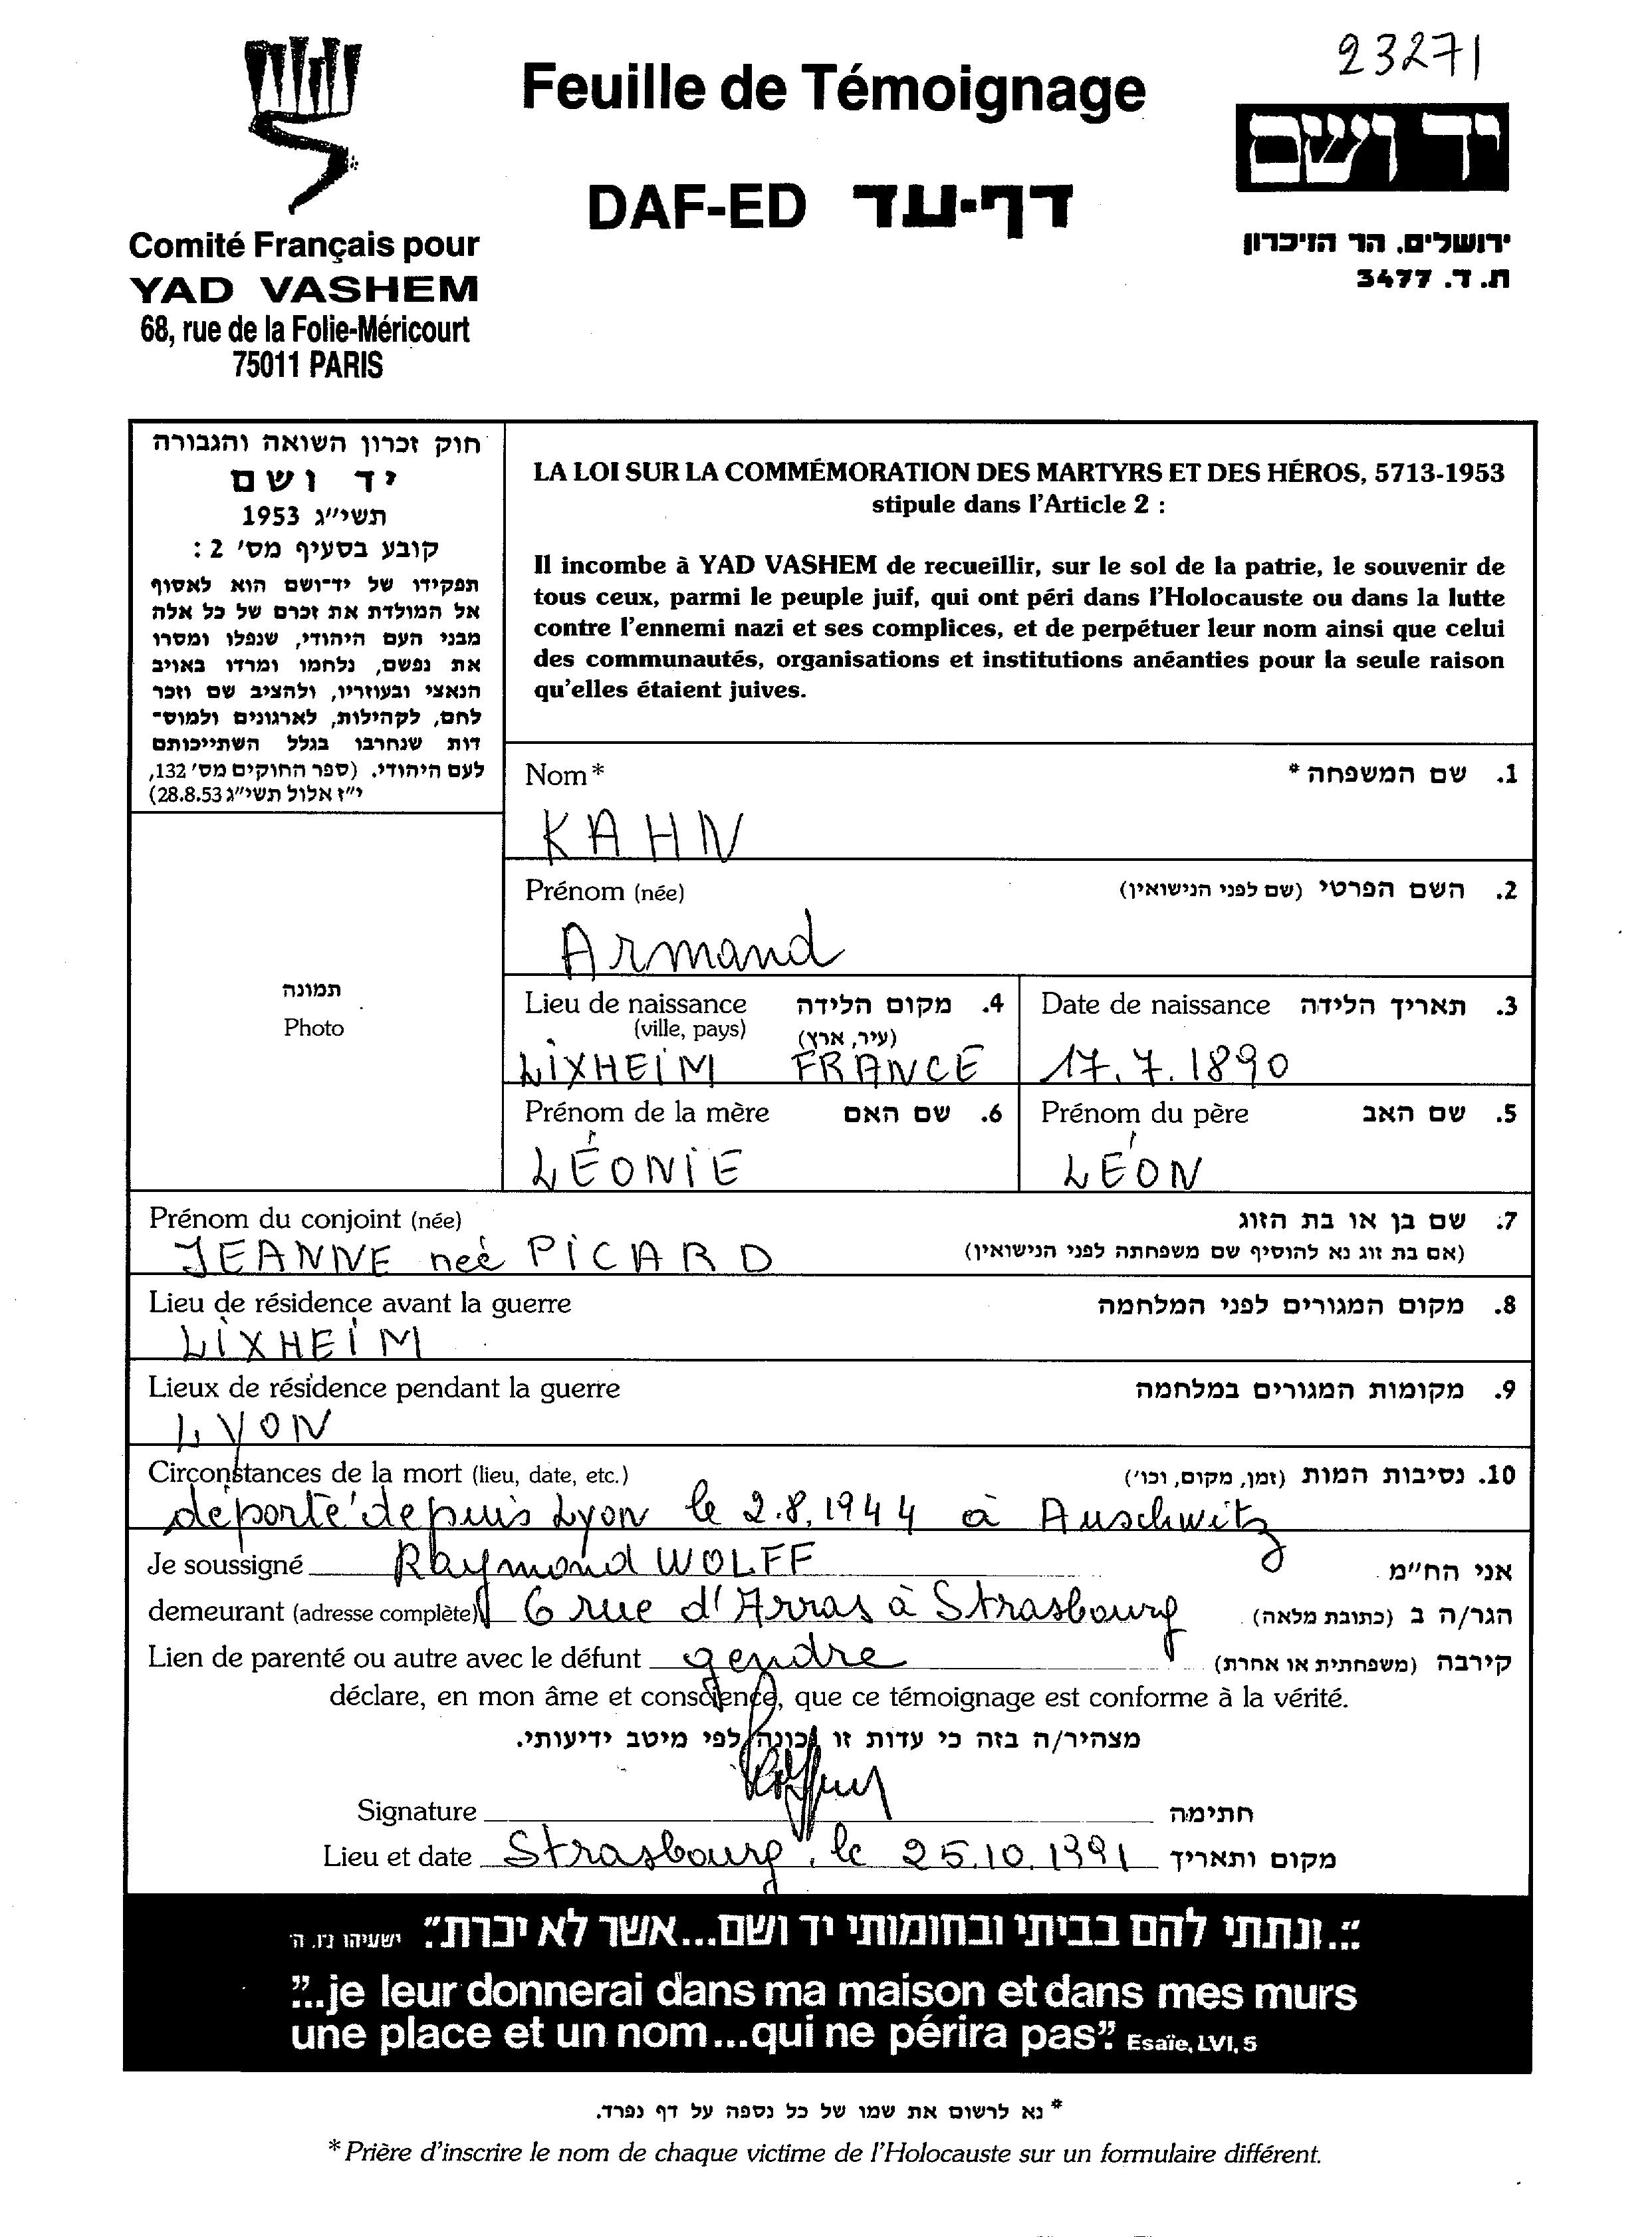 23271
Feuille de Témoignage
DAF-ED דף-עד
Comité Français pour
YAD VASHEM
68, rue de la Folie-Méricourt
75011 PARIS
יד ושם
ירושלים, הר הזיכרון
ת. ד. 3477
חוק זכרון השואה והגבורה
יד ושם
תשי״ג 1953
קובע בסעיף מס׳ 2 :
תפקידו של יד־ושם הוא לאסוף
אל המולדת את זכרם של כל אלה
מבני העם היהודי, שנפלו ומסרו
את נפשם, נלחמו ומרדו באויב
הנאצי ובעוזריו, ולהציב שם וזכר
להם, לקהילות, לארגונים ולמוס־
דות שנחרבו בגלל השתייכותם
לעם היהודי. (ספר החוקים מס׳ 132,
י״ז אלול תשי״ג 28.8.53)
LA LOI SUR LA COMMÉMORATION DES MARTYRS ET DES HÉROS, 5713-1953
stipule dans l'Article 2 :
Il incombe à YAD VASHEM de recueillir, sur le sol de la patrie, le souvenir de
tous ceux, parmi le peuple juif, qui ont péri dans l'Holocauste ou dans la lutte
contre l'ennemi nazi et ses complices, et de perpétuer leur nom ainsi que celui
des communautés, organisations et institutions anéanties pour la seule raison
qu'elles étaient juives.
Nom* 1. שם המשפחה *
KAHN
Prénom (née) 2. השם הפרטי (שם לפני הנישואין)
Armand
תמונה
Photo
Lieu de naissance 4. מקום הלידה
(ville, pays) (עיר, ארץ)
LIXHEIM FRANCE
Date de naissance 3. תאריך הלידה
17.7.1890
Prénom de la mère 6. שם האם
LÉONIE
Prénom du père 5. שם האב
LÉON
Prénom du conjoint (née) 7. שם בן או בת הזוג
JEANNE neé PICARD (אם בת זוג נא להוסיף שם משפחתה לפני הנישואין)
Lieu de résidence avant la guerre 8. מקום המגורים לפני המלחמה
LIXHEIM
Lieux de résidence pendant la guerre 9. מקומות המגורים במלחמה
LYON
Circonstances de la mort (lieu, date, etc.) 10. נסיבות המות (זמן, מקום, וכו׳)
déporté depuis Lyon le 2.8.1944 à Auschwitz
Je soussigné Raymond WOLFF אני הח״מ
demeurant (adresse complète) 6 rue d'Arras à Strasbourg הגר/ה ב (כתובת מלאה)
Lien de parenté ou autre avec le défunt gendre קירבה (משפחתית או אחרת)
déclare, en mon âme et conscience, que ce témoignage est conforme à la vérité.
מצהיר/ה בזה כי עדות זו נכונה לפי מיטב ידיעותי.
Signature חתימה
Lieu et date Strasbourg, le 25.10.1991 מקום ותאריך
"...ונתתי להם בביתי ובחומותי יד ושם...אשר לא יכרת" ישעיהו נ״ו, ה׳
"...je leur donnerai dans ma maison et dans mes murs
une place et un nom...qui ne périra pas" Esaïe, LVI, 5
* נא לרשום את שמו של כל נספה על דף נפרד.
* Prière d'inscrire le nom de chaque victime de l'Holocauste sur un formulaire différent.